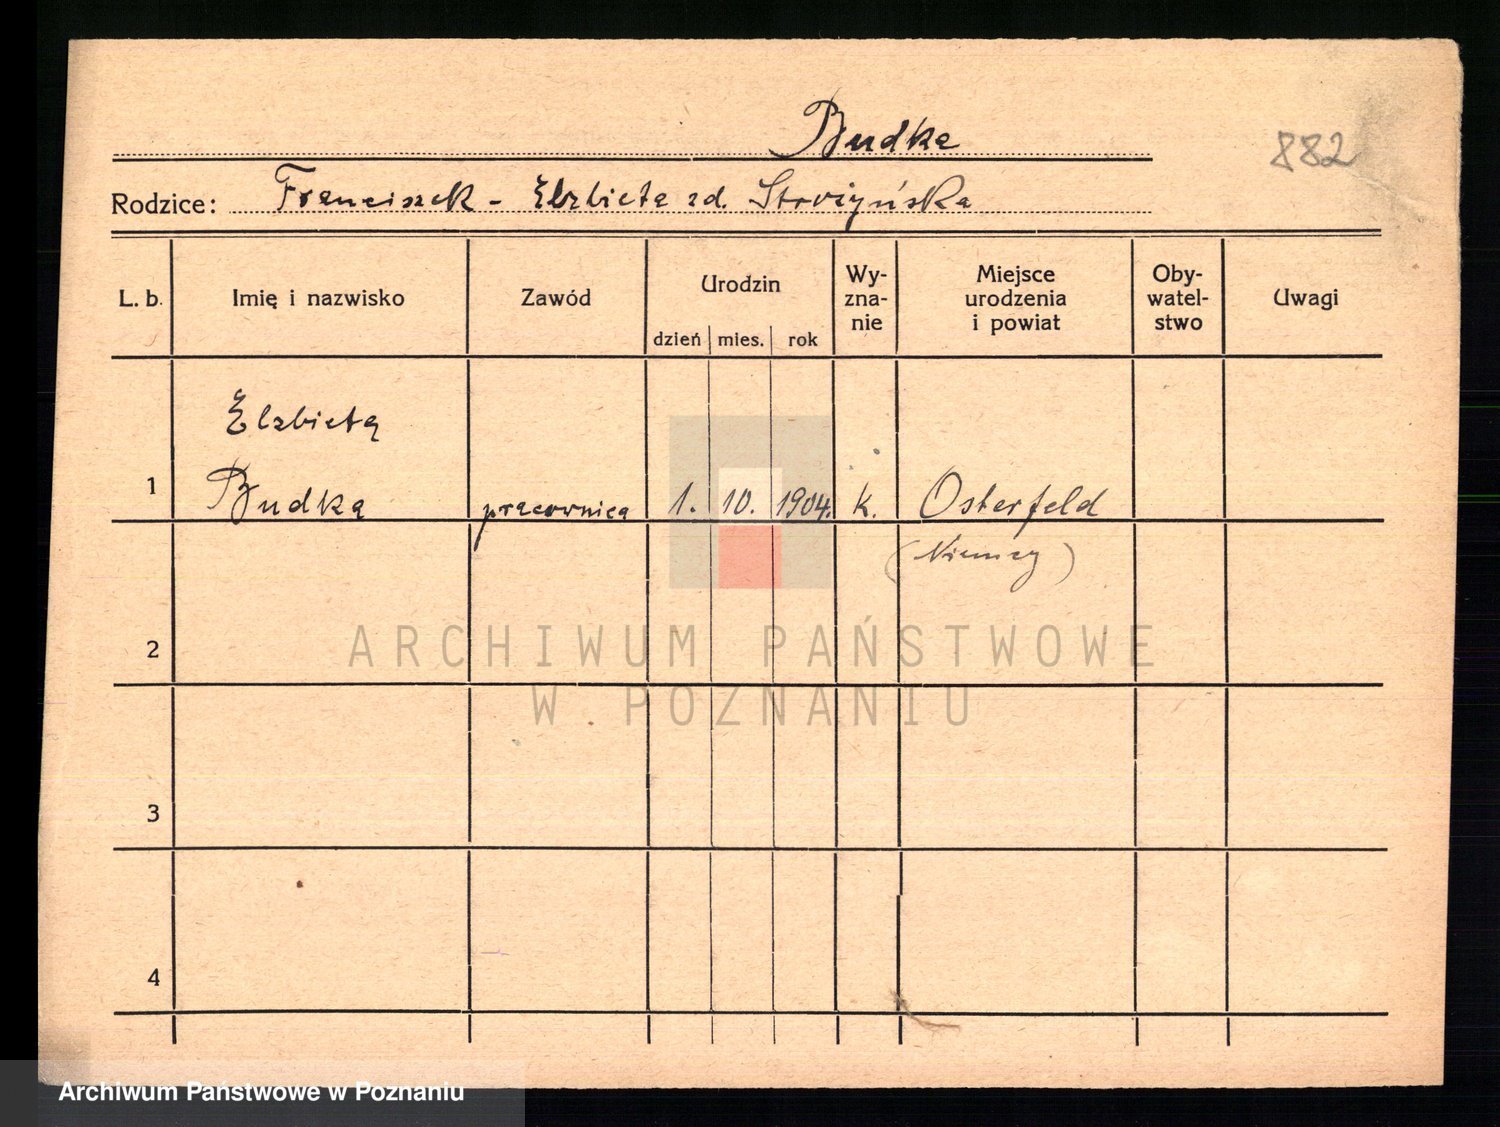 Budka
882
Rodzice: Franciszek - Elzbieta zd. Strożyńska
L. b. Imię i nazwisko Zawód Urodzin Wy-zna-nie Miejsce urodzenia i powiat Oby-watel-stwo Uwagi
dzień mies. rok
Elzbieta
1 Budka pracownica 1. 10. 1904. k. Osterfeld
(Niemcy)
2
ARCHIWUM PAŃSTWOWE
W POZNANIU
3
4
Archiwum Państwowe w Poznaniu